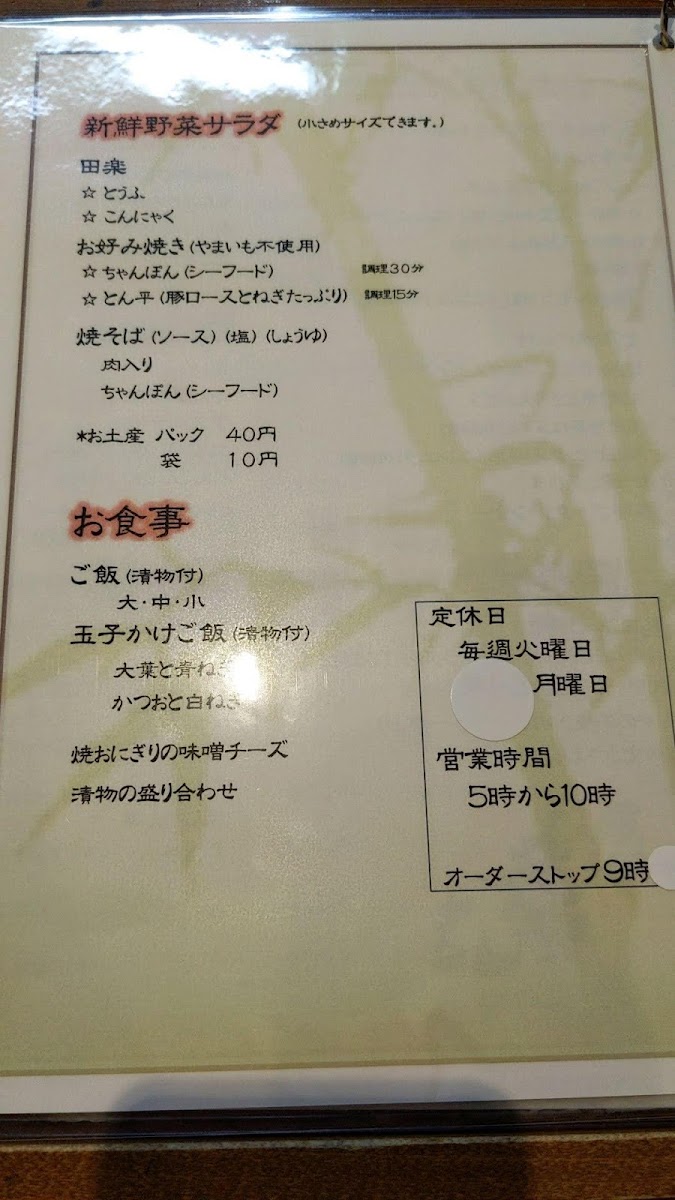 新鮮野菜サラダ (小さめサイズできます。)
田楽
☆ とうふ
☆ こんにゃく
お好み焼き (やまいも不使用)
☆ ちゃんぽん (シーフード) 調理30分
☆ とん平 (豚ロースとねぎたっぷり) 調理15分
焼そば (ソース) (塩) (しょうゆ)
肉入り
ちゃんぽん (シーフード)
*お土産 パック 40円
袋 10円
お食事
ご飯 (漬物付)
大・中・小
玉子かけご飯 (漬物付)
大葉と青ねぎ
かつおと白ねぎ
焼おにぎりの味噌チーズ
漬物の盛り合わせ
定休日
毎週火曜日
月曜日
営業時間
5時から10時
オーダーストップ 9時